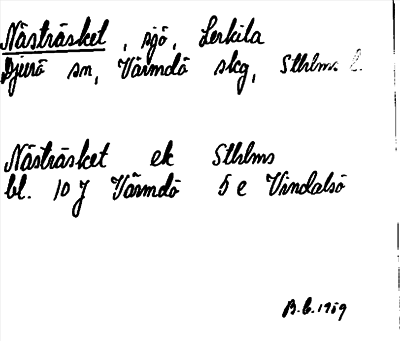 Nästräsket, sjö, Lerkila
Djurö sn, Värmdö skg, Sthlms l.
Nästräsket ek Sthlms
bl. 10 J Värmdö 5 e Vindalsö
B.C. 1959